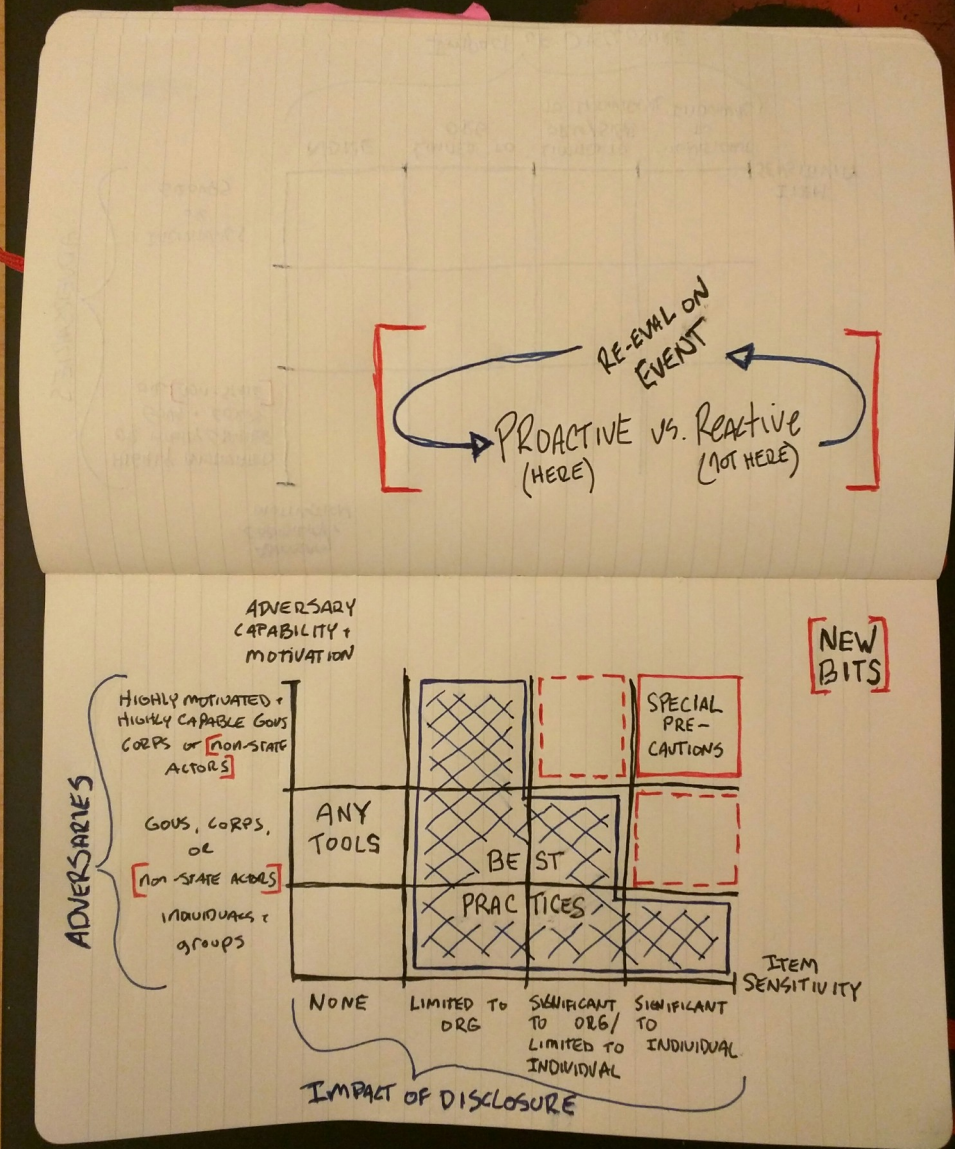 RE-EVAL ON
EVENT
PROACTIVE vs. Reactive
(HERE) (NOT HERE)
ADVERSARY
CAPABILITY +
MOTIVATION
[NEW
BITS]
ADVERSARIES
HIGHLY MOTIVATED +
HIGHLY CAPABLE GOVS
CORPS or [non-STATE
ACTORS]
GOVS, CORPS,
OR
[non-STATE ACTORS]
INDIVIDUALS +
groups
SPECIAL
PRE-
CAUTIONS
ANY
TOOLS
BEST
PRACTICES
ITEM
SENSITIVITY
NONE
LIMITED TO
ORG
SIGNIFICANT
TO ORG/
LIMITED TO
INDIVIDUAL
SIGNIFICANT
TO
INDIVIDUAL
IMPACT OF DISCLOSURE